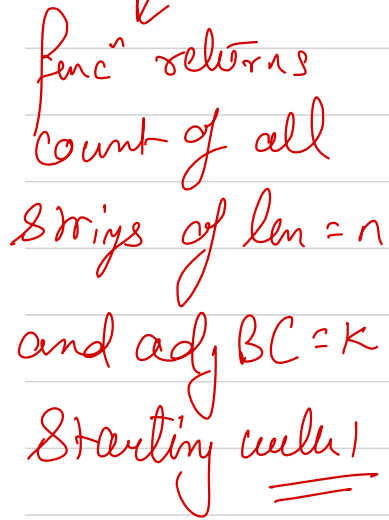 funcⁿ returns
count of all
strings of len = n
and adj BC = K
starting with 1